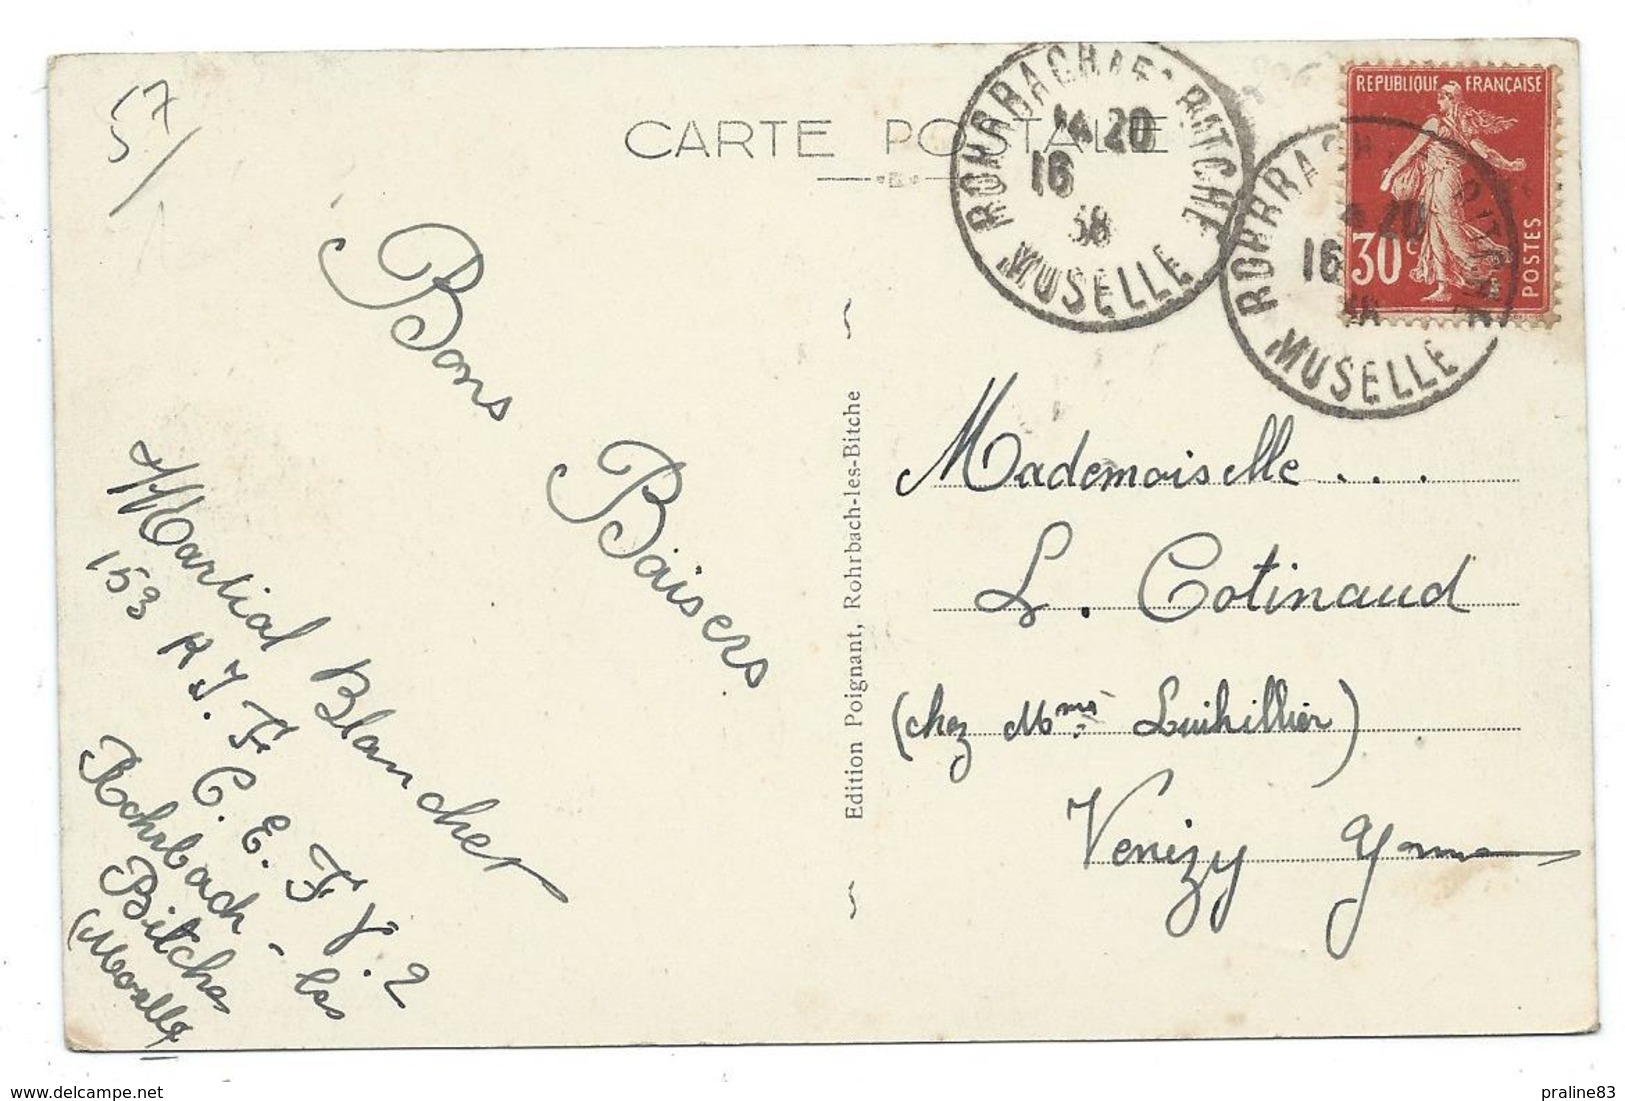 57/
CARTE POSTALE
ROHRBACH LES BITCHE
14 20
16
38
MOSELLE
REPUBLIQUE FRANÇAISE
30c
POSTES
ROHRBACH BITCHE
20
16
MOSELLE
Bons
Baisers
Martial Blancher
153 R.I.F. C.E.F V.2
Rohrbach-les
Bitche
(Moselle
Edition Poignant, Rohrbach-les-Bitche
Mademoiselle ...
L. Cotinaud
(chez Mme Luihillier)
Venizy Yonne
delcampe.net
praline83